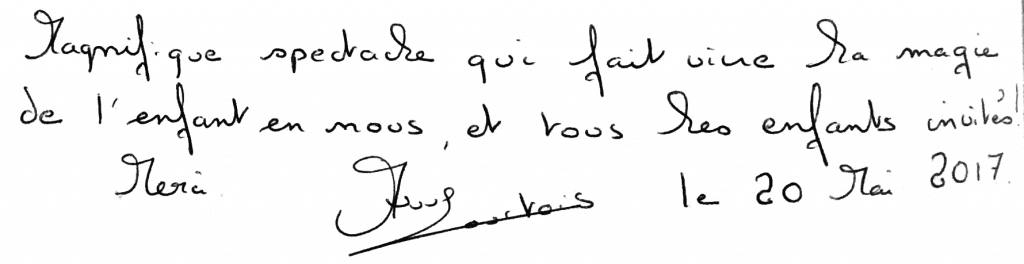 Magnifique spectacle qui fait vivre la magie
de l'enfant en nous, et tous les enfants invités!
Merci le 20 Mai 2017.